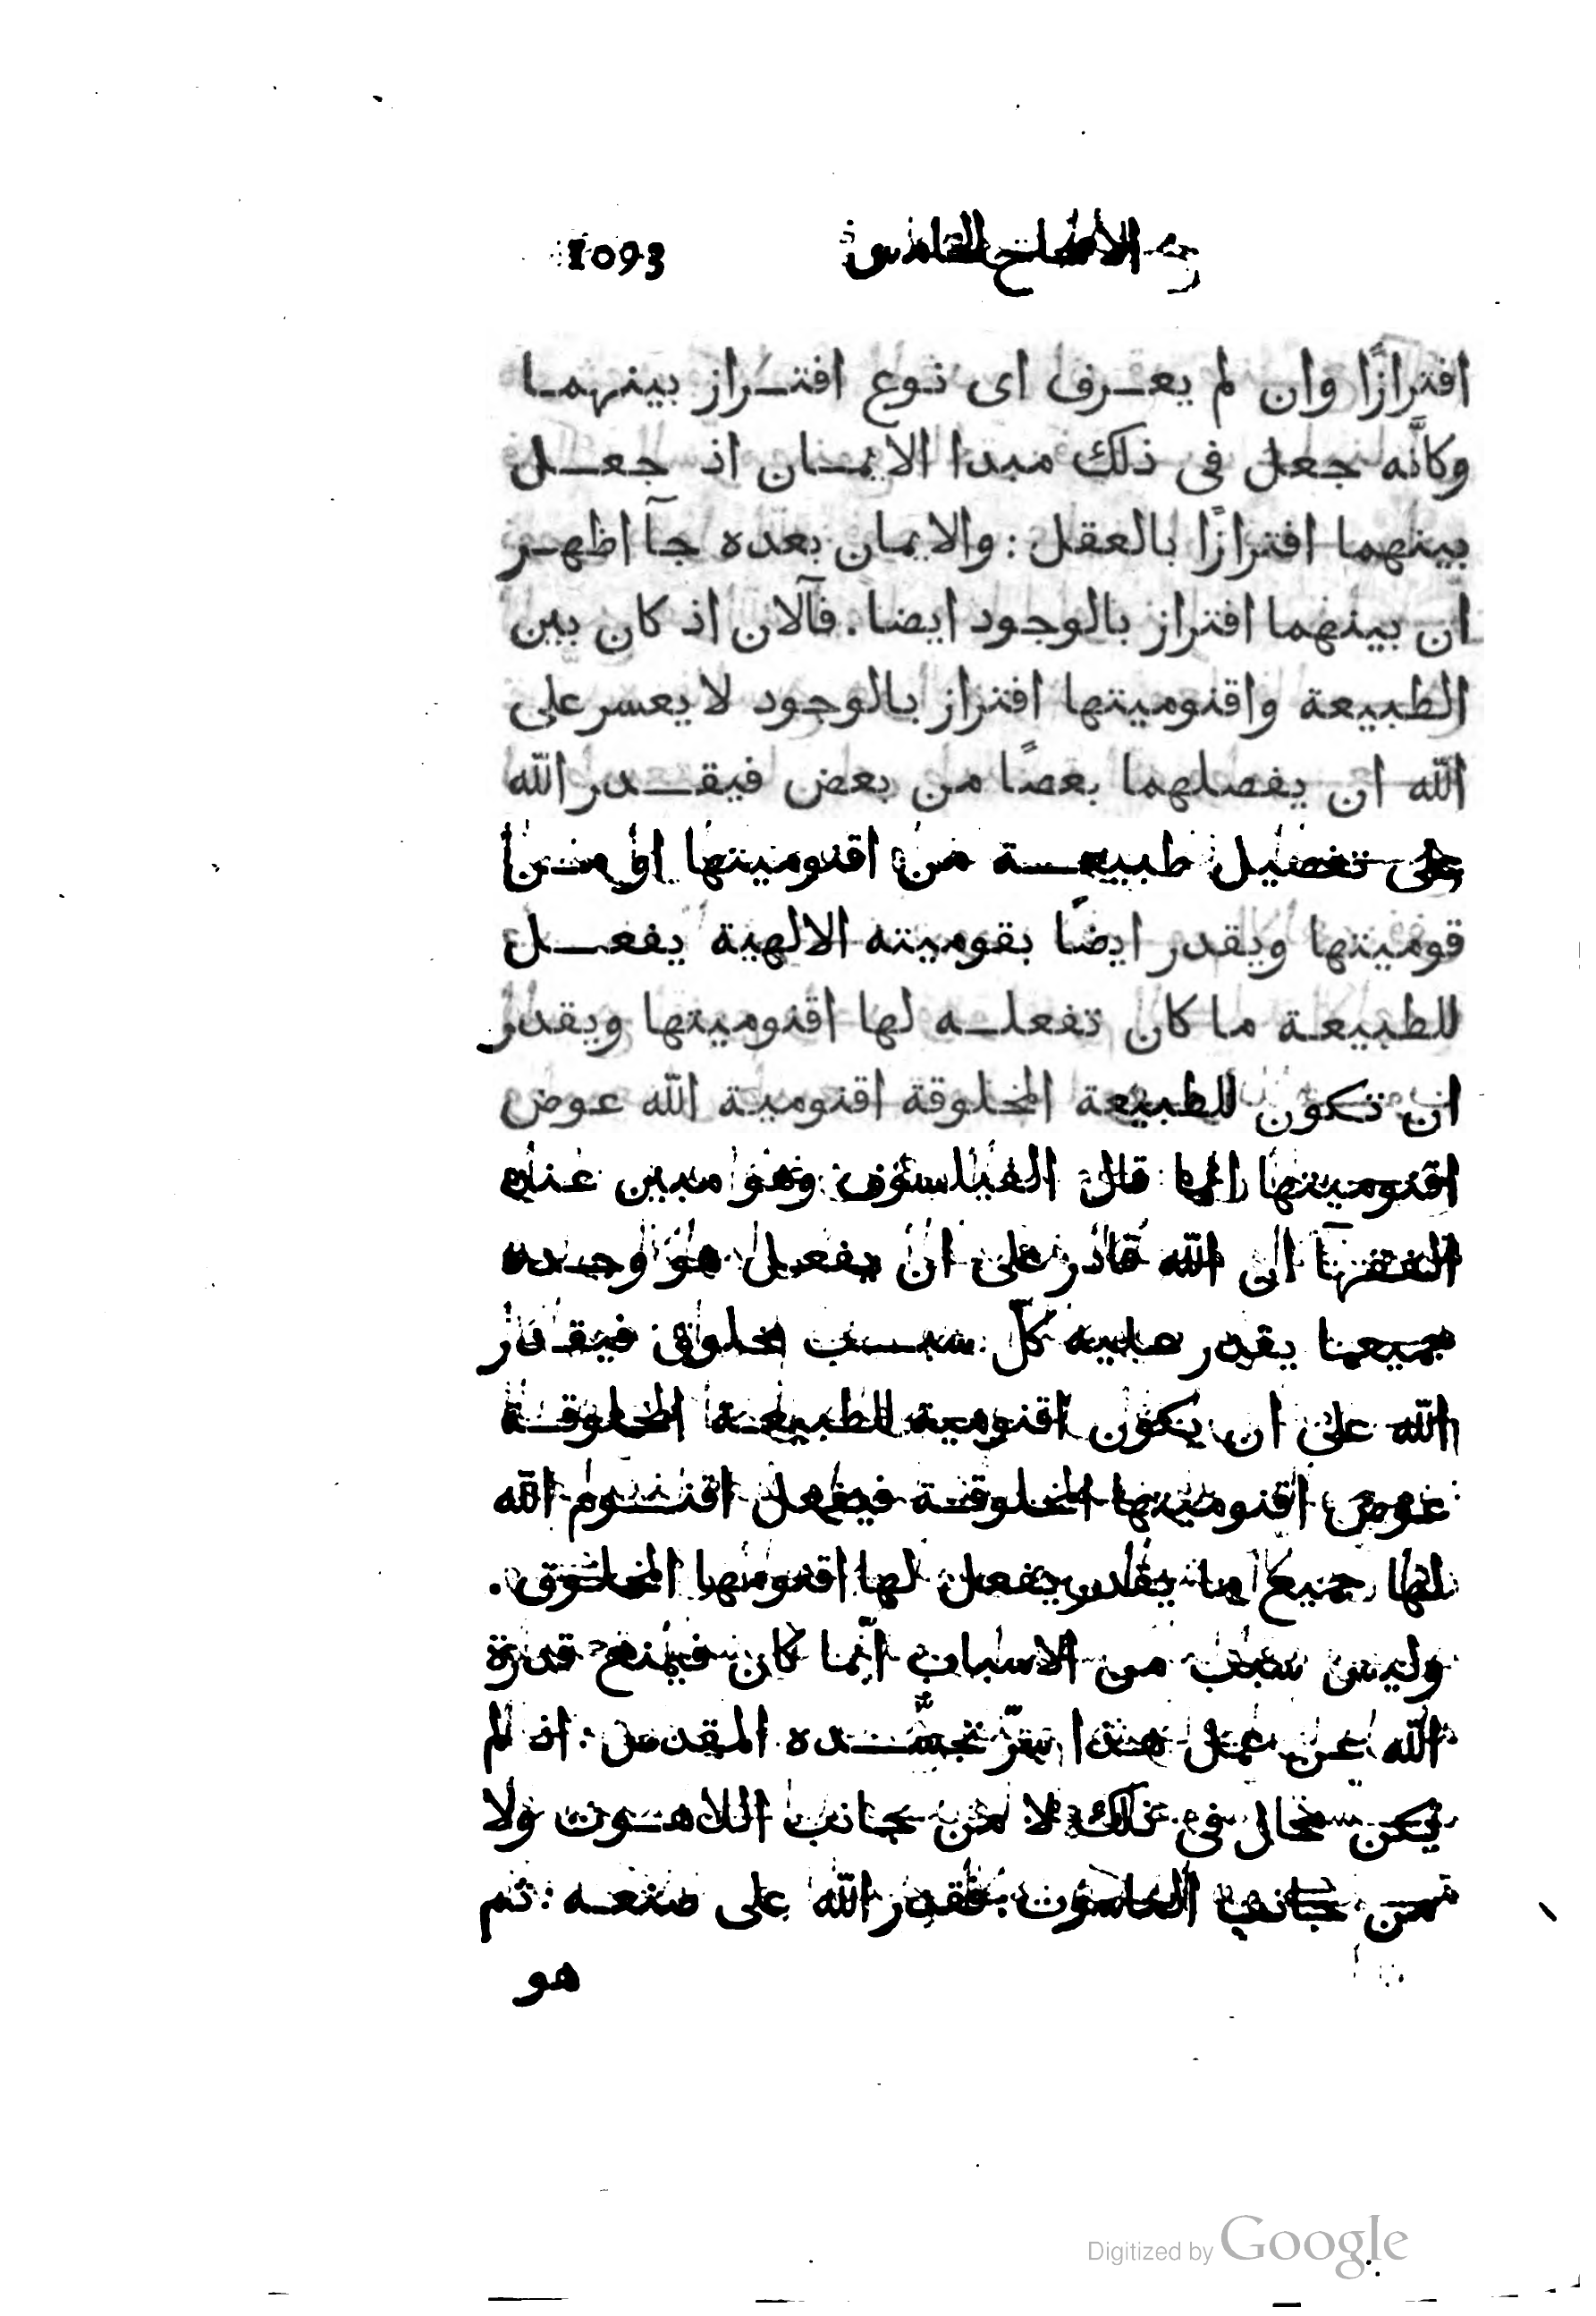 الاصحاح الخامس 1093
افترازًا وان لم يعرف اى نوع افتراز بينهما
وكانَّه جعل فى ذلك مبدا الايمان اذ جعل
بينهما افترازًا بالعقل : والايمان بعده جآ اظهر
ان بينهما افتراز بالوجود ايضا . فآلان اذ كان بين
الطبيعة واقنوميتها افتراز بالوجود لا يعسر على
اللّه ان يفصلهما بعضًا من بعض فيقدر اللّه
على تفصيل طبيعة من اقنوميتها او من
قوميتها ويقدر ايضًا بقوميته الالهية يفعل
للطبيعة ما كان تفعله لها اقنوميتها ويقدر
ان تكون للطبيعة المخلوقة اقنومية اللّه عوض
اقنوميتها قال الفيلسوف وهو مبين عند
الفقهآ ان اللّه قادر على ان يفعل هو وحده
جميعما يقدر عليه كلّ سبب مخلوق فيقدر
اللّه على ان يكون اقنومية للطبيعة المخلوقة
عوض اقنوميتها المخلوقة فيفعل اقنوم اللّه
لها جميع ما يقدر يفعل لها اقنومها المخلوق .
وليس سبب من الاسباب ايّما كان فيمنع قدرة
اللّه عن عمل هذا سرّ تجسُّده المقدس : اذ لم
يكن محال فى ذلك لا من جانب اللاهوت ولا
من جانب الناسوت : فقدر اللّه على صنعه : ثم
هو
Digitized by Google